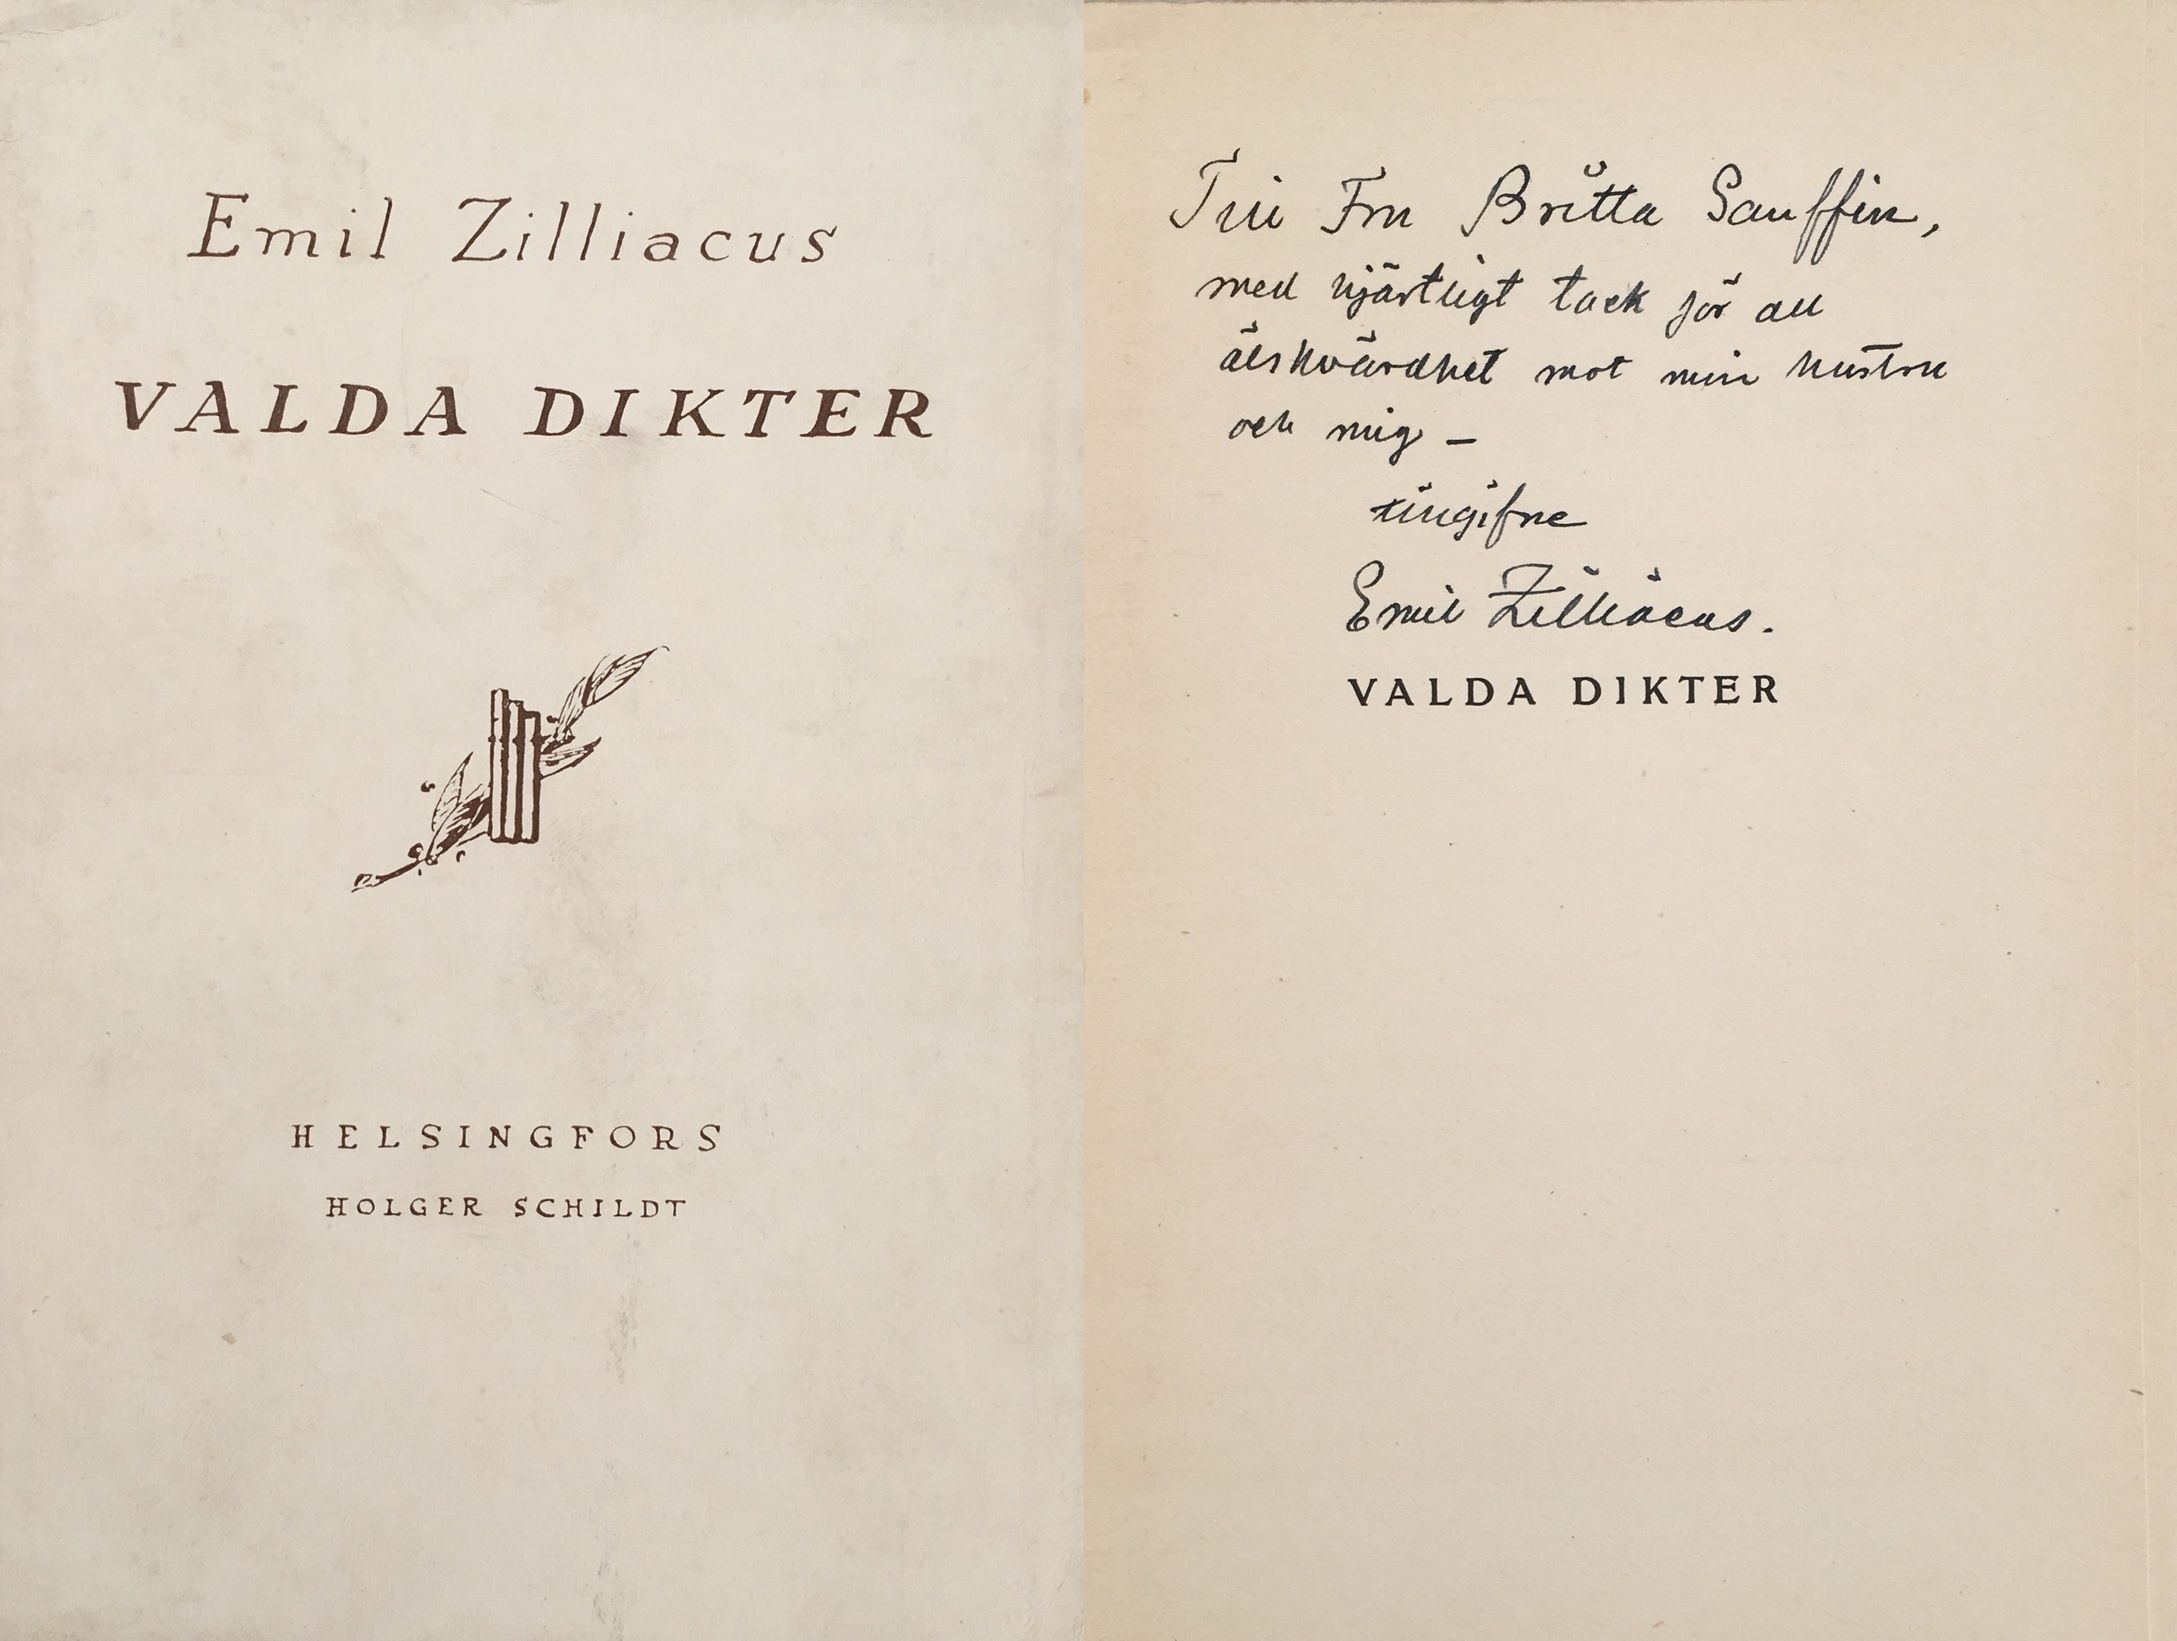 Emil Zilliacus
VALDA DIKTER
HELSINGFORS
HOLGER SCHILDT
Till Fru Britta Sauffin,
med hjärtligt tack för all
älskvärdhet mot min hustru
och mig –
tillgifne
Emil Zilliacus.
VALDA DIKTER